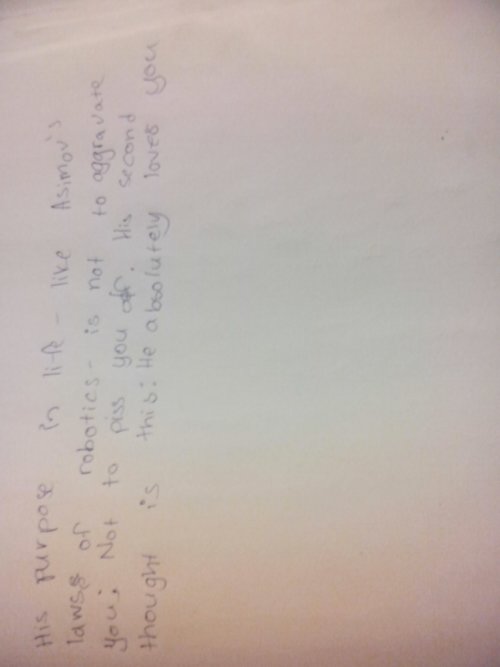 His purpose in life - like Asimov's
laws of robotics - is not to aggravate
you. Not to piss you off. His second
thought is this: He absolutely loves you